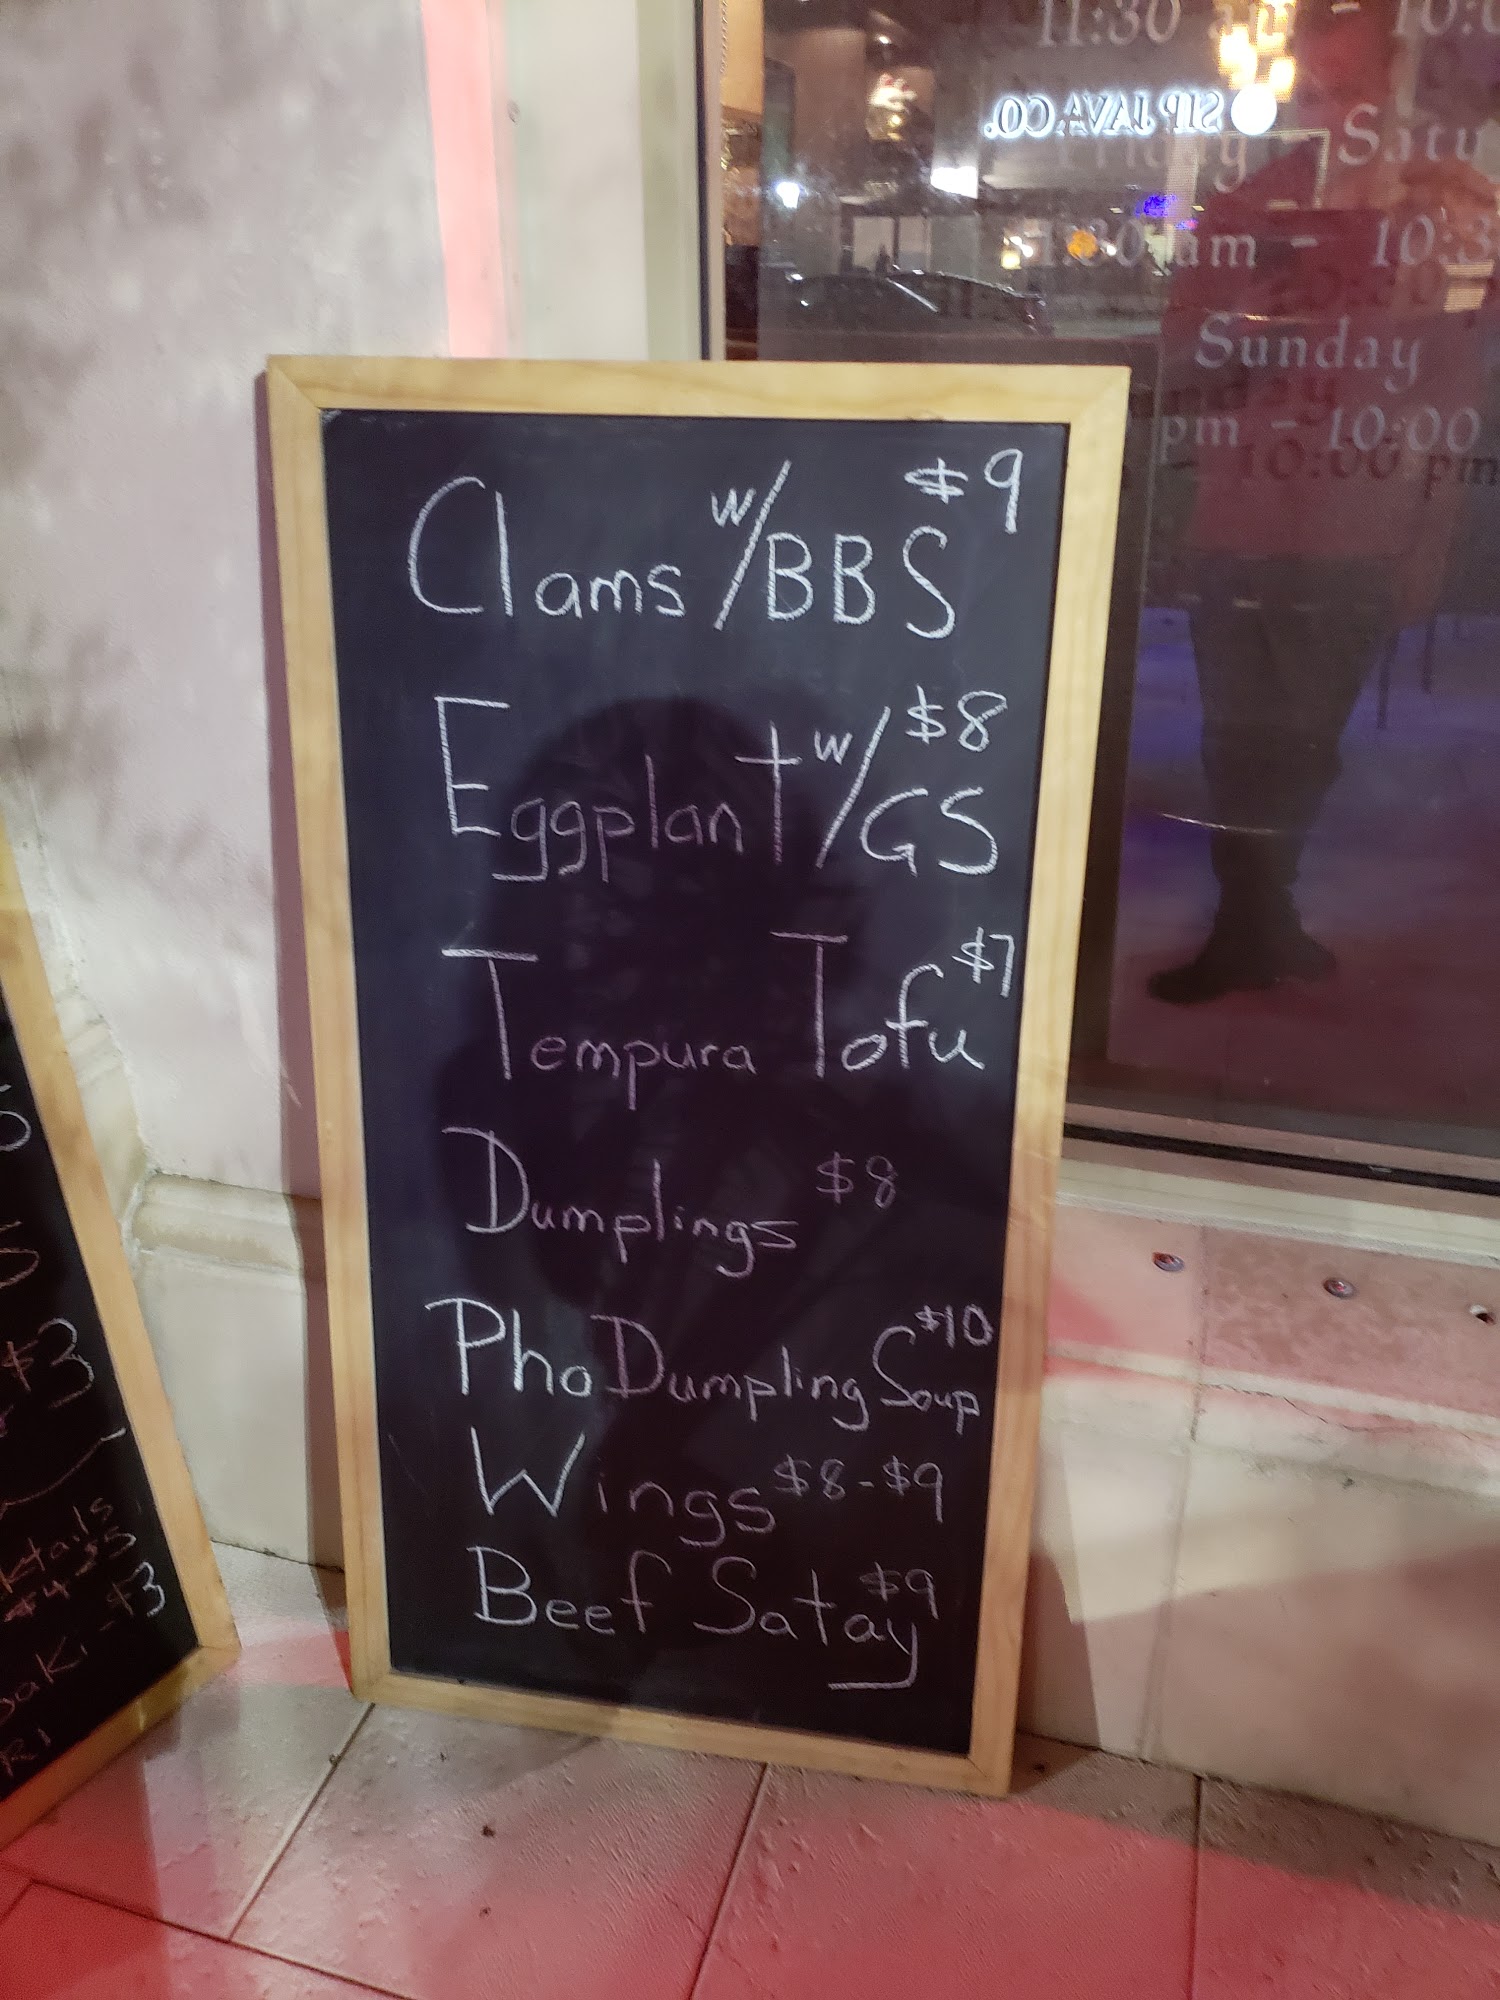 11:30 am - 10:0
SIP JAVA CO.
Friday - Satu
1:30 am - 10:3
Sunday
pm - 10:00
10:00 pm
$9
Clams w/BBS
$8
Eggplant w/GS
$7
Tempura Tofu
Dumplings $8
$10
Pho Dumpling Soup
Wings $8-$9
Beef Satay $9
$3
ktails
$4 $5
aki - $3
RI